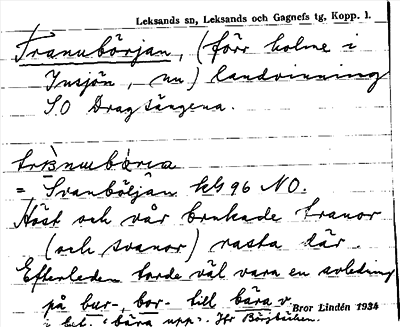 Leksands sn, Leksands och Gagnefs tg, Kopp. l.
Tranubörjan, (förr holme i
Insjön, nu) landvinning
SO Dragsängena.
= Svanböljan kbl 96 NO.
Höst och vår brukade tranor
(och svanor) rasta där.
Efterleden torde väl vara en avledning
på bur-, bor- till bära v.
i bet. "bära upp". Jfr Börjbäcken.
Bror Lindén 1934